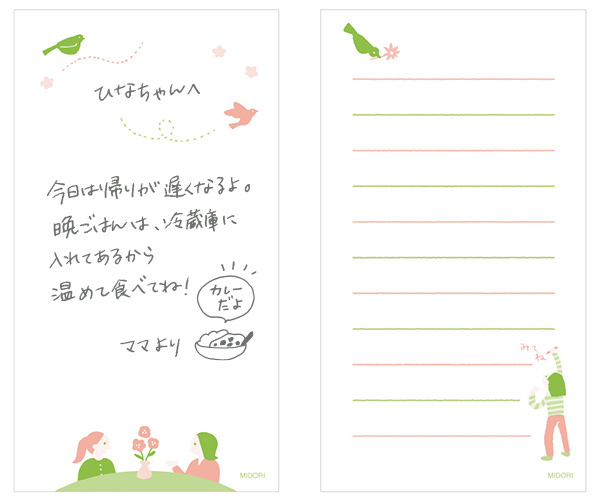 ひなちゃんへ
今日は帰りが遅くなるよ。
晩ごはんは、冷蔵庫に
入れてあるから
温めて食べてね!
カレー
だよ
ママより
MIDORI
みて
ね
MIDORI